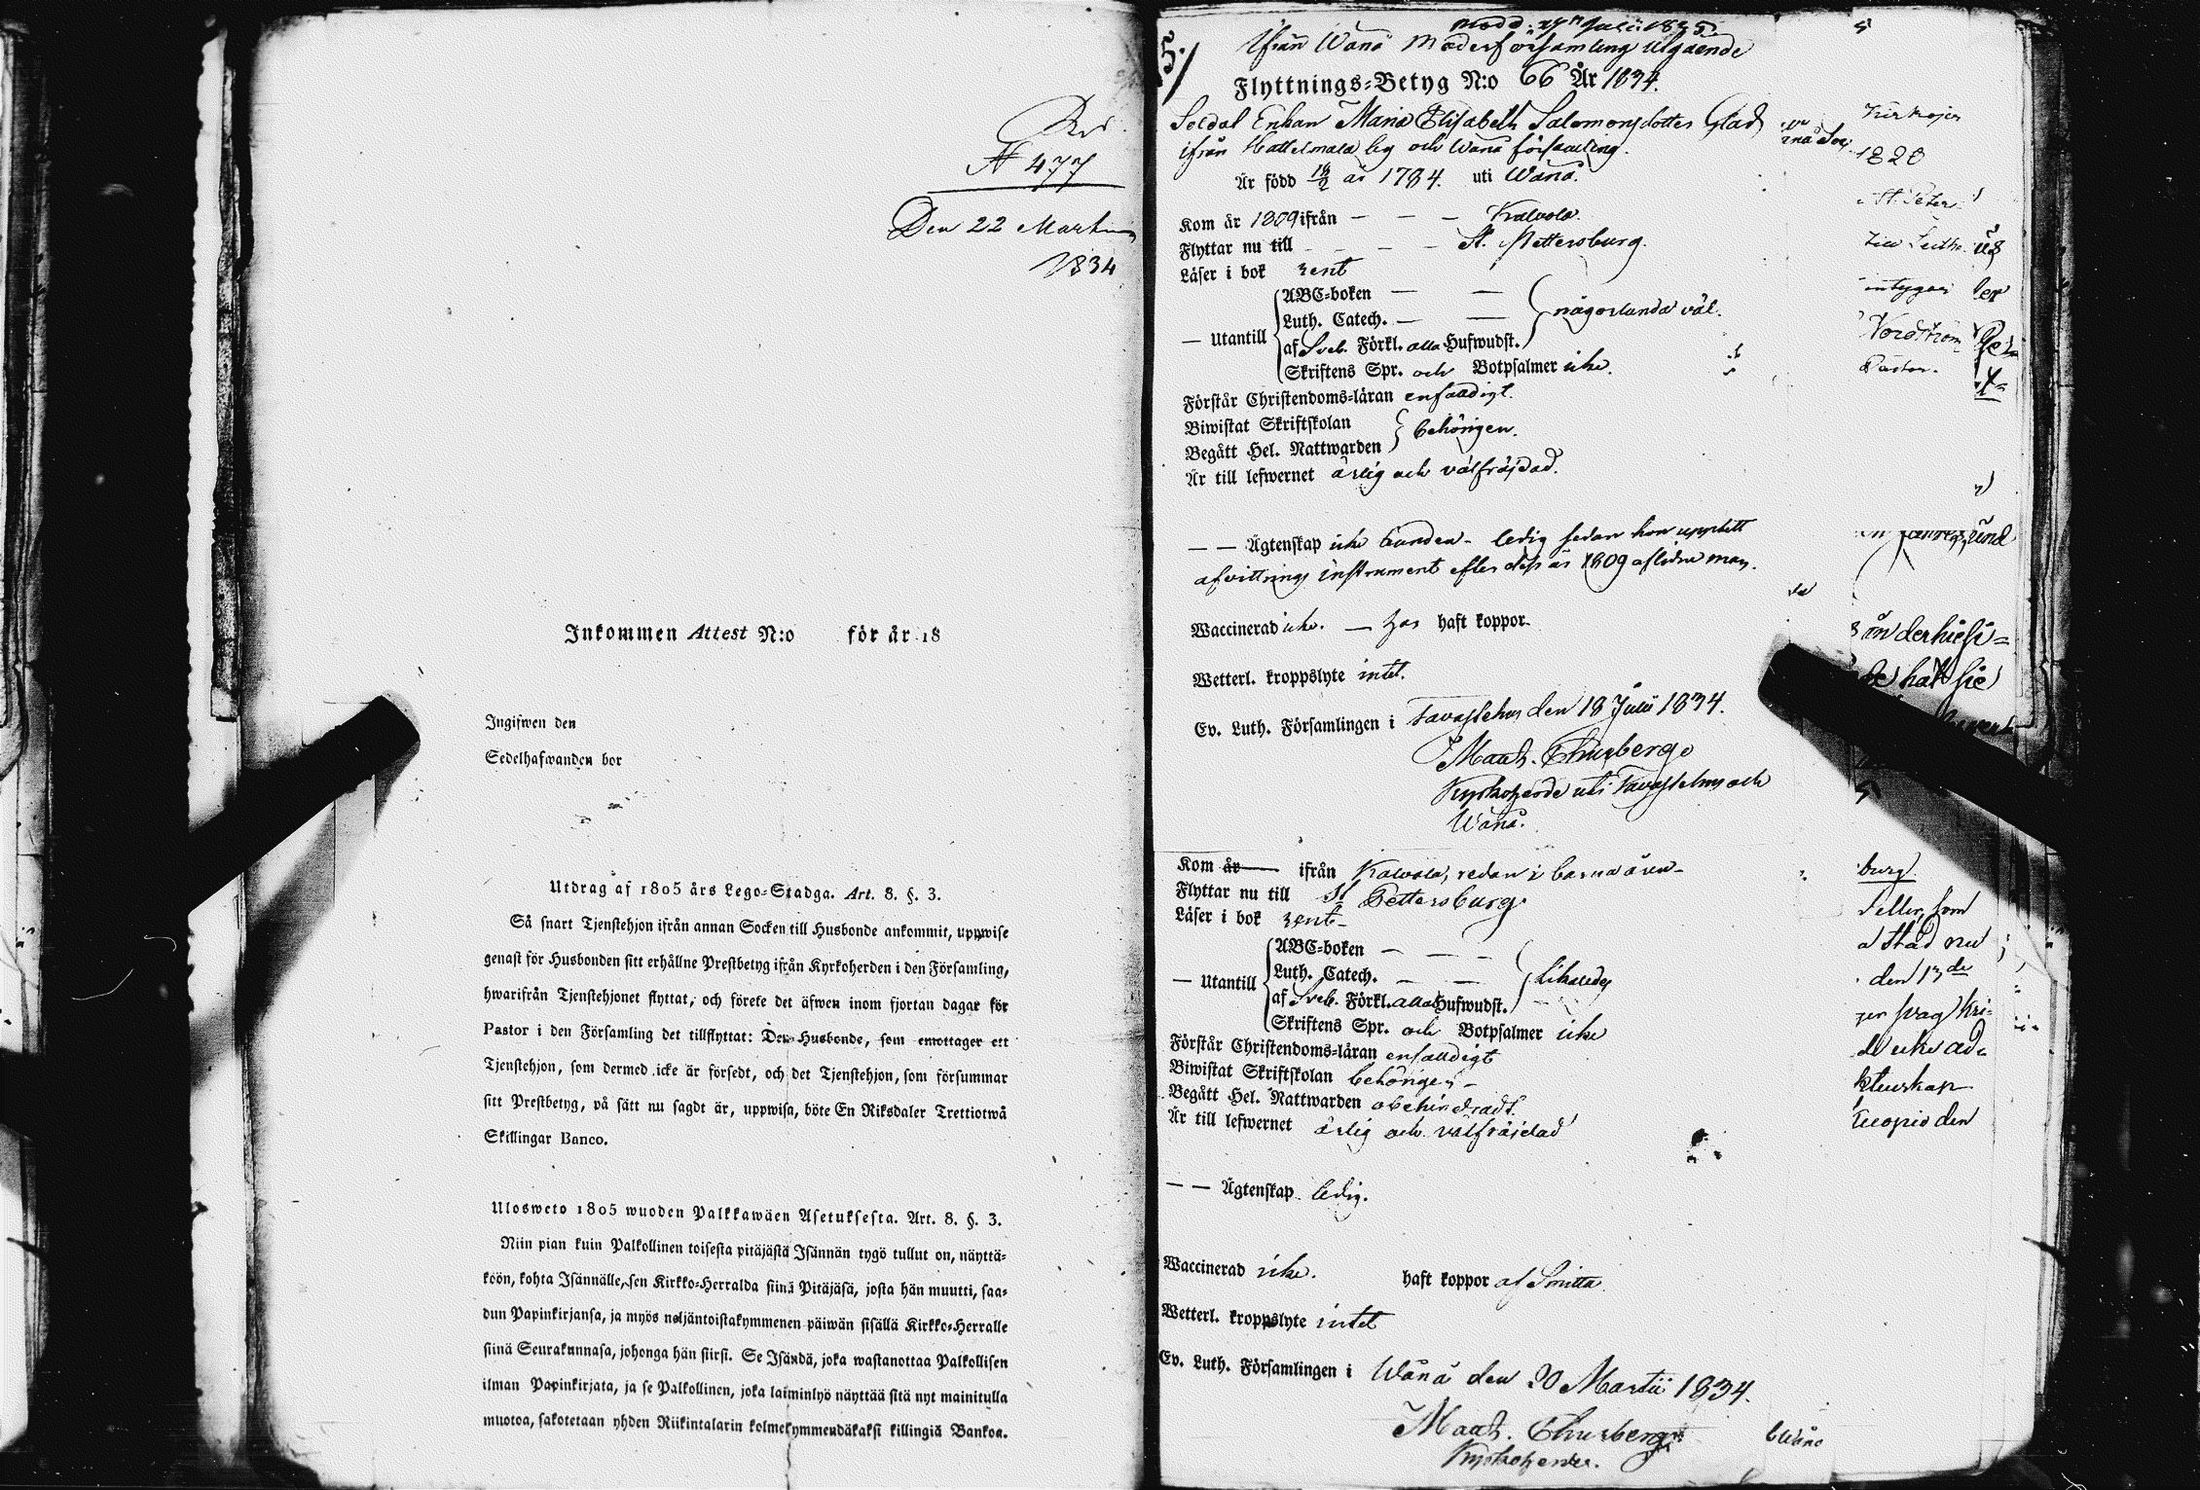 № 477
Den 22 Martii
1834
Inkommen Attest N:o för år 18
Ingifwen den
Sedelhafwanden bor
Utdrag af 1805 års Lego-Stadga. Art. 8. §. 3.
Så snart Tjenstehjon ifrån annan Socken till Husbonde ankommit, uppwise
genast för Husbonden sitt erhållne Prestbetyg ifrån Kyrkoherden i den Församling,
hwarifrån Tjenstehjonet flyttat, och förete det äfwen inom fjortan dagar för
Pastor i den Församling det tillflyttat: Den Husbonde, som emottager ett
Tjenstehjon, som dermed icke är försedt, och det Tjenstehjon, som försummar
sitt Prestbetyg, på sätt nu sagdt är, uppwisa, böte En Riksdaler Trettiotwå
Skillingar Banco.
Ulosweto 1805 wuoden Palkkawäen Asetuksesta. Art. 8. §. 3.
Niin pian kuin Palkollinen toisesta pitäjästä Isännän tygö tullut on, näyttä-
köön, kohta Isännälle, sen Kirkko-Herralda siinä Pitäjäsä, josta hän muutti, saa-
dun Papinkirjansa, ja myös neljäntoistakymmenen päiwän sisällä Kirkko-Herralle
siinä Seurakunnasa, johonga hän siirsi. Se Isändä, joka wastanottaa Palkollisen
ilman Papinkirjata, ja se Palkollinen, joka laiminlyö näyttää sitä nyt mainitulla
muotoa, sakotetaan yhden Riikintalarin kolmekymmendäkaksi killingiä Bankoa.
Ifrån Wånå Moderförsamling utgående
Flyttnings-Betyg N:o 66 År 1834.
Soldat Enkan Maria Elisabeth Salomonsdotter Glad
ifrån Hattelmala by och Wånå församling.
Är född 18/2 år 1784. uti Wånå.
Kom år 1809 ifrån — — — Kalvola.
Flyttar nu till — — — — St. Pettersburg.
Läser i bok rent
— Utantill
ABC-boken — —
Luth. Catech. — — någorlunda väl.
af Sveb. Förkl. alla Hufwudst.
Skriftens Spr. och Botpsalmer icke.
Förstår Christendoms-läran enfaldigt.
Biwistat Skriftskolan
Begått Hel. Nattwarden behörigen.
Är till lefwernet ärlig och välfräjdad.
— — Ägtenskap icke bunden - ledig sedan hon upprättt
afvittrings instrument efter dess år 1809 aflidne man.
Waccinerad icke. — har haft koppor.
Wetterl. kroppslyte intet.
Ev. Luth. Församlingen i Tavastehus den 18 Julii 1834.
Math. Thurberg
Kyrkoherde uti Tavastehus och
Wånå.
Kom år ifrån Kalvola, redan i barna åren -
Flyttar nu till St Pettersburg
Läser i bok rent -
— Utantill
ABC-boken — — —
Luth. Catech. — — likaledes
af Sveb. Förkl. alla Hufwudst.
Skriftens Spr. och Botpsalmer icke
Förstår Christendoms-läran enfaldigt
Biwistat Skriftskolan behörigen -
Begått Hel. Nattwarden obehindradt.
Är till lefwernet ärlig och välfräjdad
— — Ägtenskap ledig.
Waccinerad icke. haft koppor af Smitta.
Wetterl. kroppslyte intet
Ev. Luth. Församlingen i Wånå den 20 Martii 1834.
Math. Thurberg
Kyrkoherde.
1820
intygar
Nordström
Pastor.
burg.